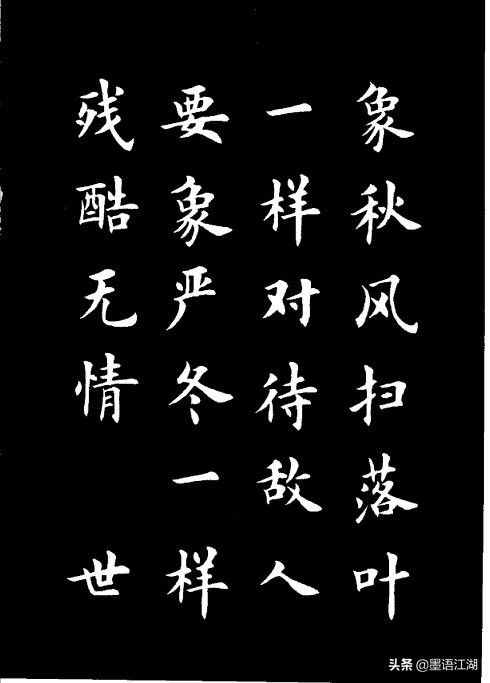 象秋风扫落叶
一样对待敌人
要象严冬一样
残酷无情 世
头条 @墨语江湖